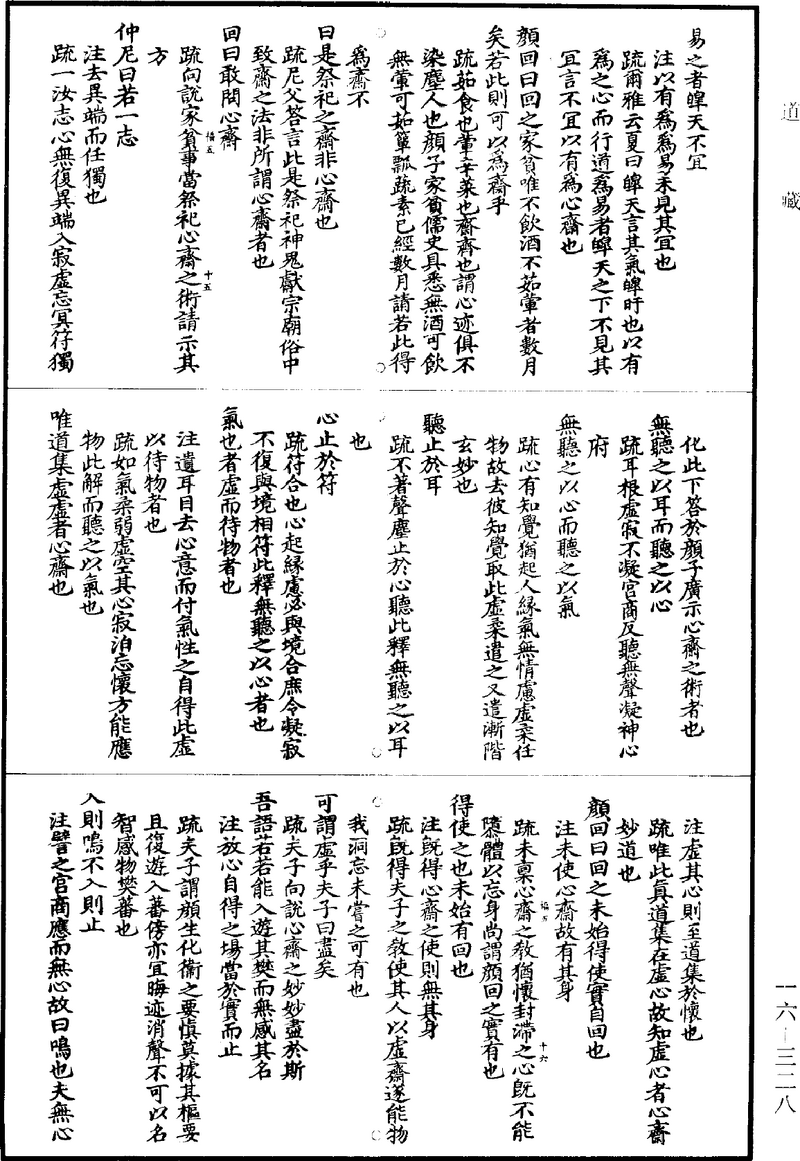 道藏
易之者皥天不宜
注以有為為易未見其宜也
疏爾雅云夏曰皥天言其氣皥旰也以有
為之心而行道為易者皥天之下不見其
宜言不宜以有為心齋也
顏回曰回之家貧唯不飲酒不茹葷者數月
矣若此則可以為齋乎
疏茹食也葷辛菜也齋齊也謂心迹俱不
染塵人也顏子家貧儒史具悉無酒可飲
無葷可茹簞瓢蔬素已經數月請若此得
為齋不
曰是祭祀之齋非心齋也
疏尼父答言此是祭祀神鬼獻宗廟俗中
致齋之法非所謂心齋者也
回曰敢問心齋
福五 十五
疏向說家貧事當祭祀心齋之術請示其
方
仲尼曰若一志
注去異端而任獨也
疏一汝志心無復異端入寂虛忘冥符獨
化此下答於顏子廣示心齋之術者也
無聽之以耳而聽之以心
疏耳根虛寂不凝宮商反聽無聲凝神心
府
無聽之以心而聽之以氣
疏心有知覺猶起人緣氣無情慮虛柔任
物故去彼知覺取此虛柔遣之又遣漸階
玄妙也
聽止於耳
疏不著聲塵止於心聽此釋無聽之以耳
也
心止於符
疏符合也心起緣慮必與境合庶令凝寂
不復與境相符此釋無聽之以心者也
氣也者虛而待物者也
注遺耳目去心意而付氣性之自得此虛
以待物者也
疏如氣柔弱虛空其心寂泊忘懷方能應
物此解而聽之以氣也
唯道集虛虛者心齋也
注虛其心則至道集於懷也
疏唯此真道集在虛心故知虛心者心齋
妙道也
顏回曰回之未始得使實自回也
注未使心齋故有其身
福五 十六
疏未稟心齋之教猶懷封滯之心既不能
隳體以忘身尚謂顏回之實有也
得使之也未始有回也
注既得心齋之使則無其身
疏既得夫子之教使其人以虛齋遂能物
我洞忘未嘗之可有也
可謂虛乎夫子曰盡矣
疏夫子向說心齋之妙妙盡於斯
吾語若若能入遊其樊而無感其名
注放心自得之場當於實而止
疏夫子謂顏生化衛之要慎莫據其樞要
且復遊入蕃傍亦宜晦迹消聲不可以名
智感物樊蕃也
入則鳴不入則止
注譬之宮商應而無心故曰鳴也夫無心
一六—三二八